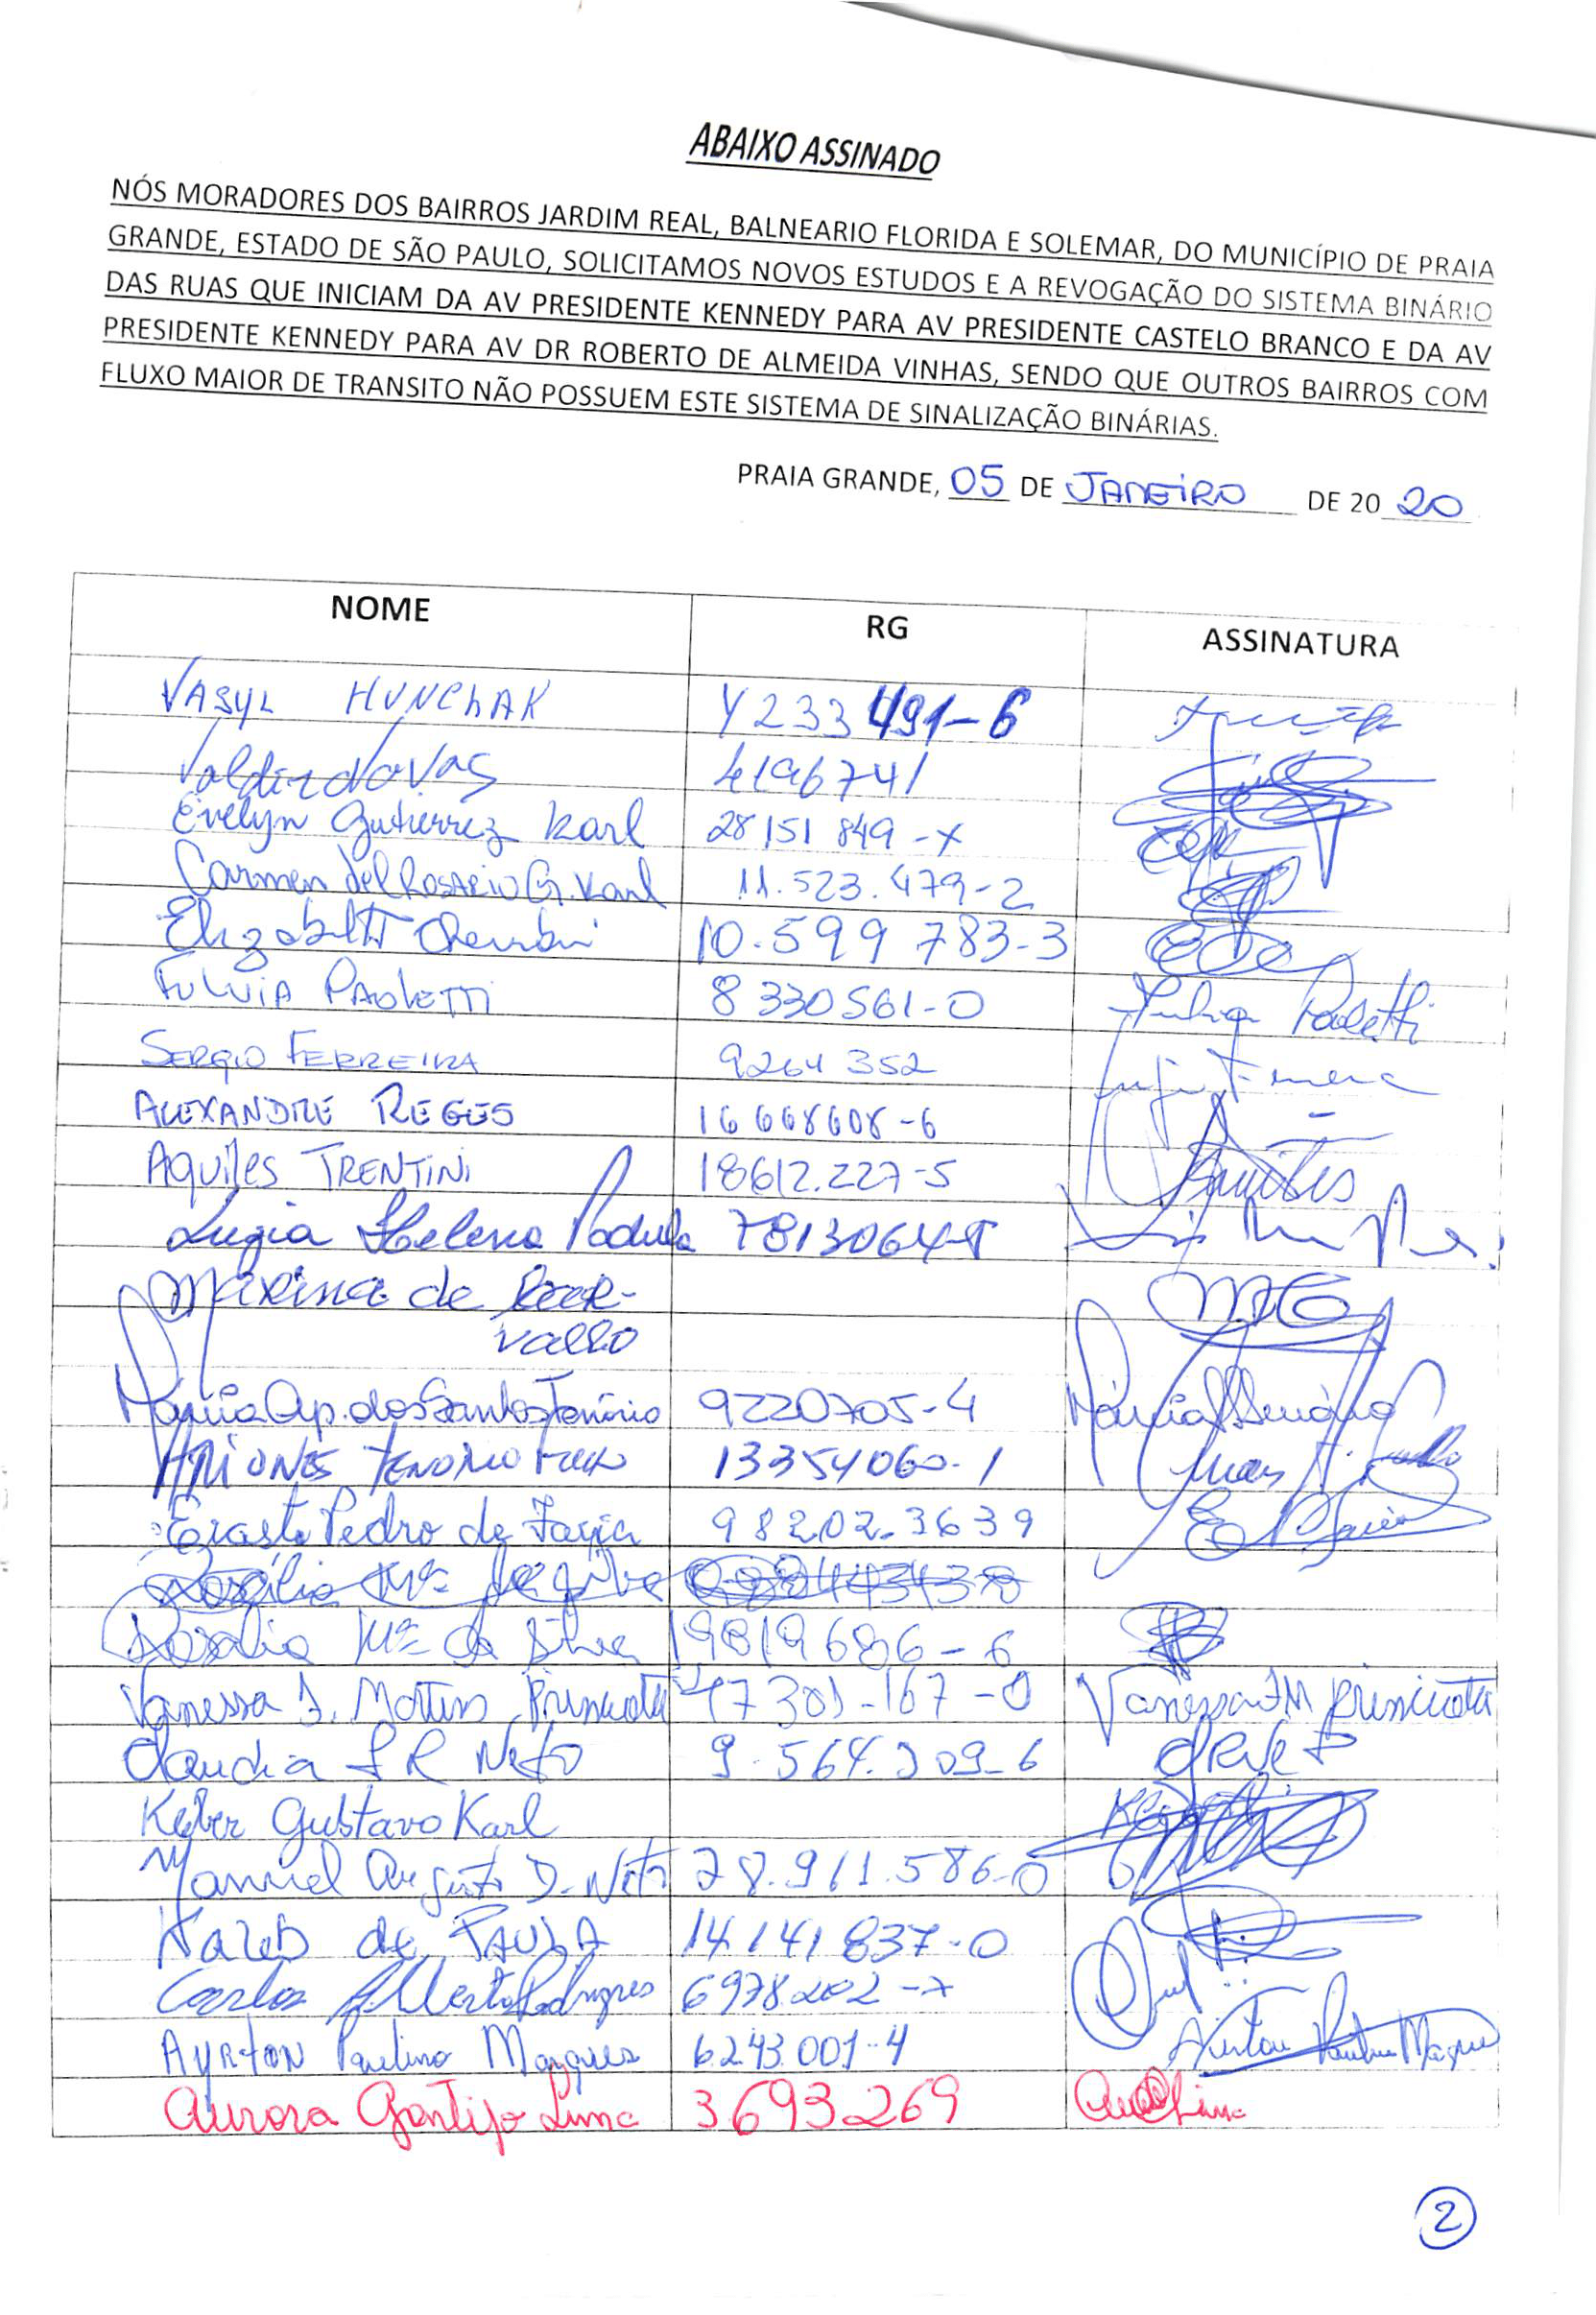 ABAIXO ASSINADO
NÓS MORADORES DOS BAIRROS JARDIM REAL, BALNEARIO FLORIDA E SOLEMAR, DO MUNICÍPIO DE PRAIA
GRANDE, ESTADO DE SÃO PAULO, SOLICITAMOS NOVOS ESTUDOS E A REVOGAÇÃO DO SISTEMA BINÁRIO
DAS RUAS QUE INICIAM DA AV PRESIDENTE KENNEDY PARA AV PRESIDENTE CASTELO BRANCO E DA AV
PRESIDENTE KENNEDY PARA AV DR ROBERTO DE ALMEIDA VINHAS, SENDO QUE OUTROS BAIRROS COM
FLUXO MAIOR DE TRANSITO NÃO POSSUEM ESTE SISTEMA DE SINALIZAÇÃO BINÁRIAS.
PRAIA GRANDE, 05 DE JANEIRO DE 20 20
NOME RG ASSINATURA
VASYL HUNChAK Y233491-6
Valdir Novas 4196741
Evelyn Gutierrez Karl 28151849-X
Carmen del Rosario G. Karl 11.523.479-2
Elizabeth 10.599783-3
FULVIA PAOLETTI 8330561-0 Fulvia Paoletti
SERGIO FERREIRA 9264352
ALEXANDRE REGES 16668608-6
AQUILES TRENTINI 18612.227-5 Aquiles
Lugia Helena
Marina de Car-
valho
Marcia Ap. dos Santos Tenório 9220705-4
TENORIO 13354060-1
Erasto Pedro de Faria 98202.3639
Rosalia Mª da Silva 19819686-6
Vanessa J. Martins 47301-167-0 Vanessa
Claudia S R Neto 9.564.309-6
Kleber Gustavo Karl
Manuel Augusto D. Neto 28.911.586-0
de PAULA 14141837-0
Carlos Alberto Rodrigues
AYRTON Paulino Marques 6.243.001-4
Aurora Gontijo Lima 3693269
2